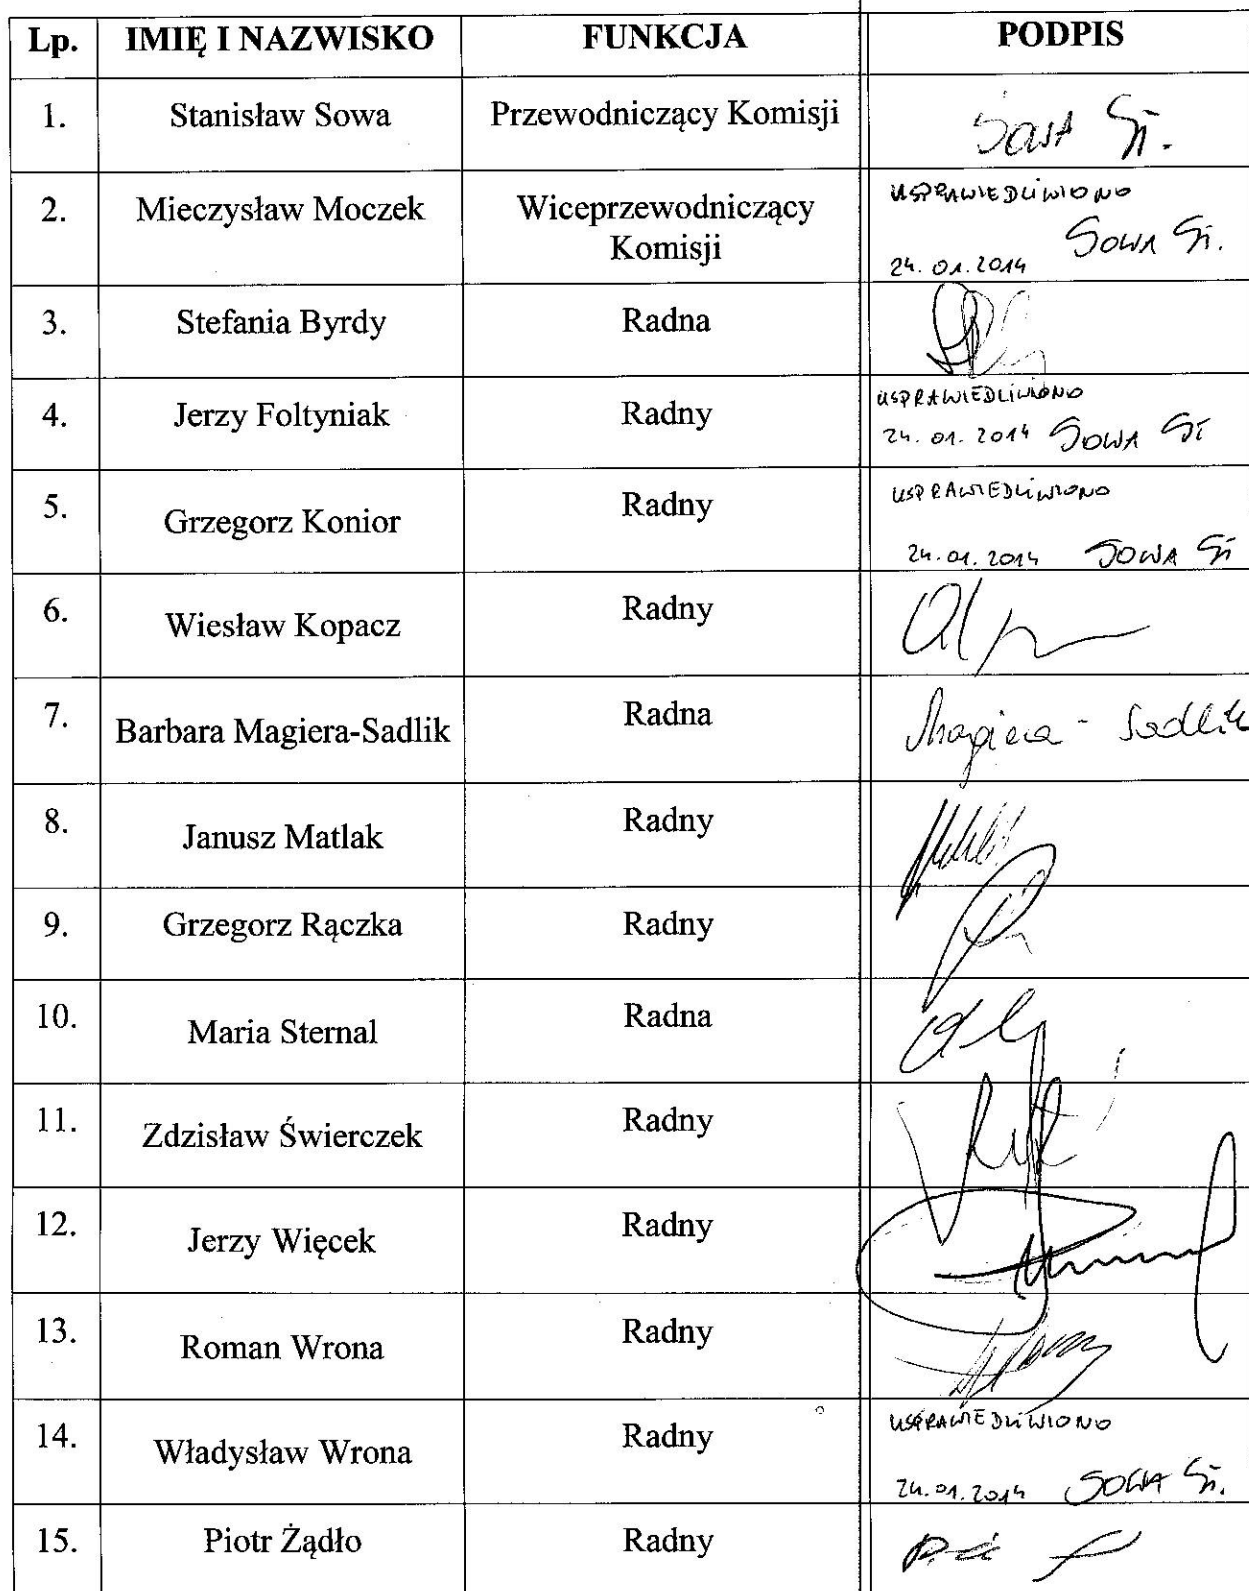 Lp. IMIĘ I NAZWISKO FUNKCJA PODPIS
1. Stanisław Sowa Przewodniczący Komisji Sowa St.
2. Mieczysław Moczek Wiceprzewodniczący Komisji USPRAWIEDLIWIONO
24.01.2014 SOWA St.
3. Stefania Byrdy Radna
4. Jerzy Foltyniak Radny USPRAWIEDLIWIONO
24.01.2014 SOWA St
5. Grzegorz Konior Radny USPRAWIEDLIWIONO
24.01.2014 SOWA St
6. Wiesław Kopacz Radny
7. Barbara Magiera-Sadlik Radna Magiera - Sadlik
8. Janusz Matlak Radny
9. Grzegorz Rączka Radny
10. Maria Sternal Radna
11. Zdzisław Świerczek Radny
12. Jerzy Więcek Radny
13. Roman Wrona Radny
14. Władysław Wrona Radny USPRAWIEDLIWIONO
24.01.2014 SOWA St.
15. Piotr Żądło Radny